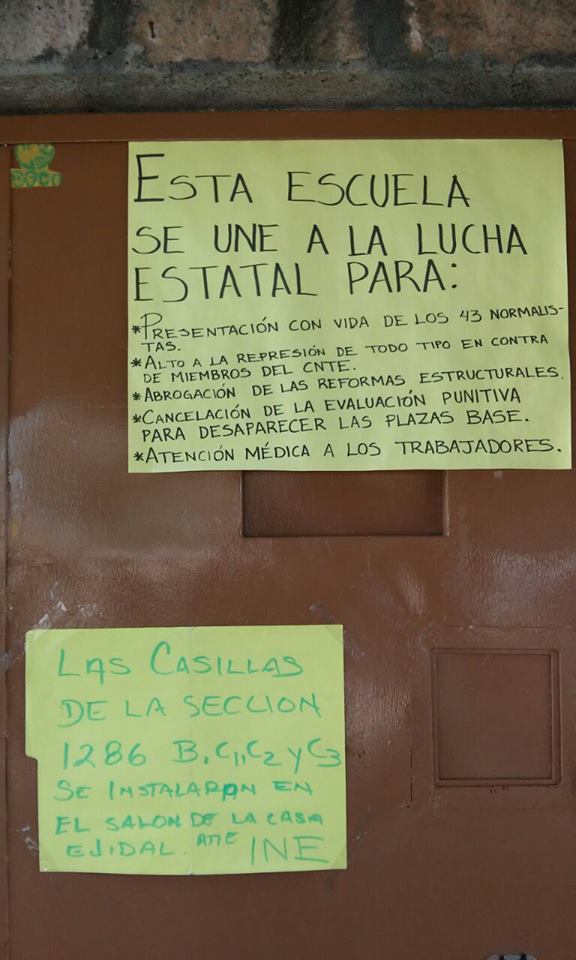 ESTA ESCUELA
SE UNE A LA LUCHA
ESTATAL PARA:
*PRESENTACIÓN CON VIDA DE LOS 43 NORMALIS-
TAS.
*ALTO A LA REPRESIÓN DE TODO TIPO EN CONTRA
DE MIEMBROS DEL CNTE.
*ABROGACIÓN DE LAS REFORMAS ESTRUCTURALES.
*CANCELACIÓN DE LA EVALUACIÓN PUNITIVA
PARA DESAPARECER LAS PLAZAS BASE.
*ATENCIÓN MÉDICA A LOS TRABAJADORES.
LAS CASILLAS
DE LA SECCION
1286 B, C1, C2 y C3
SE INSTALARON EN
EL SALON DE LA CASA
EJIDAL. ATTE INE